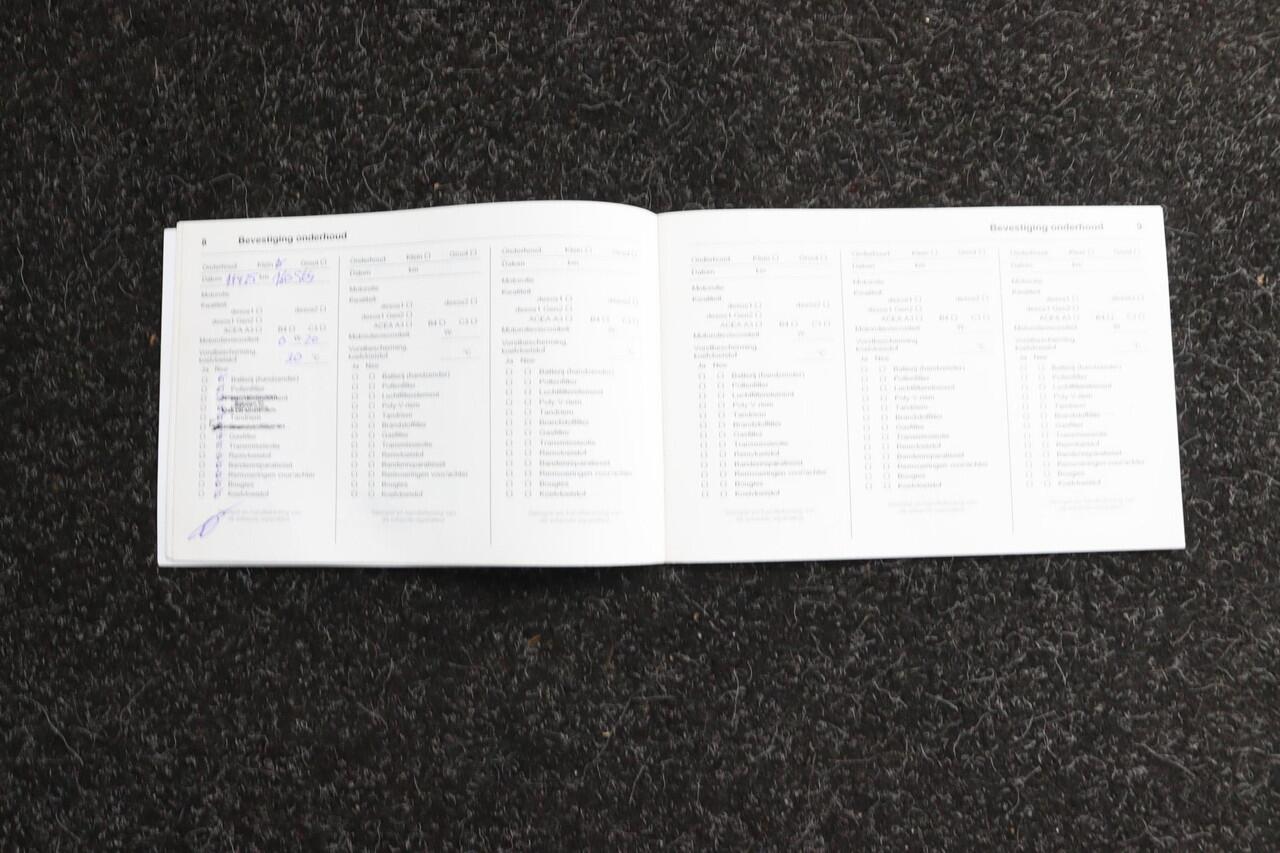 8 Bevestiging onderhoud
Onderhoud Klein Groot
Datum km
Motorolie
Kwaliteit
dexos1
dexos1 Gen2
ACEA A3 B4 C3
Motorolieviscositeit 0 W 20
Vorstbescherming
koelvloeistof °C
Ja Nee
Batterij (handzender)
Pollenfilter
Tandriem
Gasfilter
Transmissieolie
Remvloeistof
Bandenreparatieset
Remvoeringen voor/achter
Bougies
Koelvloeistof
Onderhoud Klein Groot
Datum km
Motorolie
Kwaliteit
dexos1 dexos2
dexos1 Gen2
ACEA A3 B4 C3
Motorolieviscositeit W
Vorstbescherming
koelvloeistof °C
Ja Nee
Batterij (handzender)
Pollenfilter
Luchtfilterelement
Poly-V-riem
Tandriem
Brandstoffilter
Gasfilter
Transmissieolie
Remvloeistof
Bandenreparatieset
Remvoeringen voor/achter
Bougies
Koelvloeistof
Stempel en handtekening van
de erkende reparateur
Onderhoud Klein Groot
Datum km
Motorolie
Kwaliteit
dexos1 dexos2
dexos1 Gen2
ACEA A3 B4 C3
Motorolieviscositeit W
Vorstbescherming
koelvloeistof °C
Ja Nee
Batterij (handzender)
Pollenfilter
Luchtfilterelement
Poly-V-riem
Tandriem
Brandstoffilter
Gasfilter
Transmissieolie
Remvloeistof
Bandenreparatieset
Remvoeringen voor/achter
Bougies
Koelvloeistof
Stempel en handtekening van
de erkende reparateur
Bevestiging onderhoud 9
Onderhoud Klein Groot
Datum km
Motorolie
Kwaliteit
dexos1 dexos2
dexos1 Gen2
ACEA A3 B4 C3
Motorolieviscositeit W
Vorstbescherming
koelvloeistof °C
Ja Nee
Batterij (handzender)
Pollenfilter
Luchtfilterelement
Poly-V-riem
Tandriem
Brandstoffilter
Gasfilter
Transmissieolie
Remvloeistof
Bandenreparatieset
Remvoeringen voor/achter
Bougies
Koelvloeistof
Stempel en handtekening van
de erkende reparateur
Onderhoud Klein Groot
Datum km
Motorolie
Kwaliteit
dexos1 dexos2
dexos1 Gen2
ACEA A3 B4 C3
Motorolieviscositeit W
Vorstbescherming
koelvloeistof °C
Ja Nee
Batterij (handzender)
Pollenfilter
Luchtfilterelement
Poly-V-riem
Tandriem
Brandstoffilter
Gasfilter
Transmissieolie
Remvloeistof
Bandenreparatieset
Remvoeringen voor/achter
Bougies
Koelvloeistof
Stempel en handtekening van
de erkende reparateur
Onderhoud Klein Groot
Datum km
Motorolie
Kwaliteit
dexos1 dexos2
dexos1 Gen2
ACEA A3 B4 C3
Motorolieviscositeit W
Vorstbescherming
koelvloeistof °C
Ja Nee
Batterij (handzender)
Pollenfilter
Luchtfilterelement
Poly-V-riem
Tandriem
Brandstoffilter
Gasfilter
Transmissieolie
Remvloeistof
Bandenreparatieset
Remvoeringen voor/achter
Bougies
Koelvloeistof
Stempel en handtekening van
de erkende reparateur